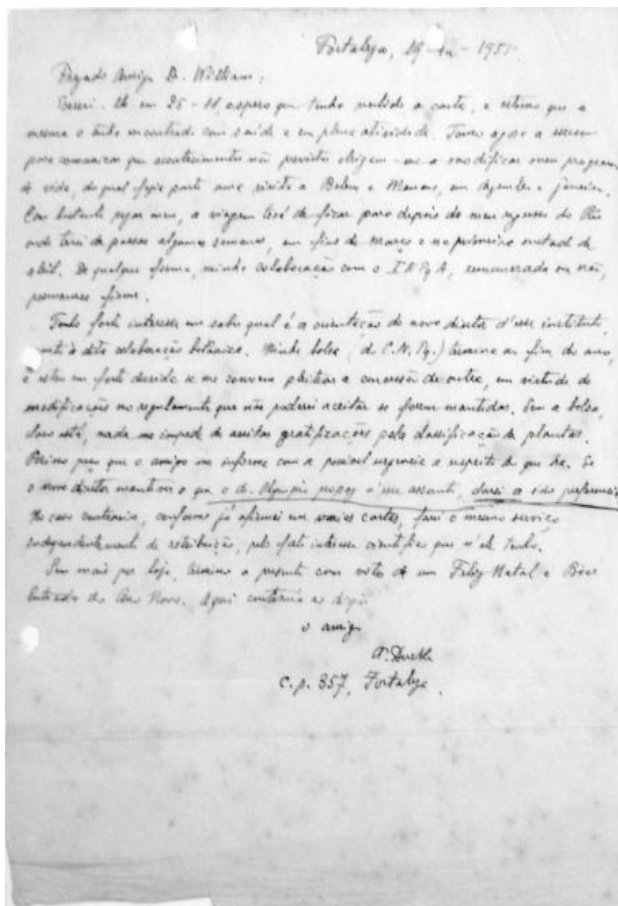 Fortaleza, 29-XII-1955
Prezado Amigo D. William:
Escrevi-lh em 25-11, espero que tenha recebido a carta, e estimo que a
mesma o tenha encontrado com saúde e em plena atividade. Torno agora a escrever
para comunicar que acontecimentos não previstos obrigam-me a modificar meu programa
de vida, do qual fazia parte uma visita a Belem e Manaus, em dezembro e janeiro.
Com bastante pezar meu, a viagem terá de ficar para depois do meu regresso do Rio
onde terei de passar algumas semanas, em fins de março e na primeira metade de
abril. De qualquer forma, minha colaboração com o I.N.P.A, remunerada ou não,
permanece firme.
Tenho forte interesse em saber qual é a orientação do novo diretor d'esse instituto,
á dita colaboração botânica. Minha bolsa (do C.N.Pq.) termina ao fim do ano,
e estou em forte duvida se me convem pleitear a concessão de outra, em virtude de
modificações no regulamento que não poderei aceitar se forem mantidas. Sem a bolsa,
claro está, nada me impede de aceitar gratificações pela classificação de plantas.
Peço para que o amigo me informe com a possivel urgencia a respeito do que ha. Se
o novo diretor mantiver o que o dr. Olympio propoz n'esse assunto, darei a isso preferencia
No caso contrario, conforme já afirmei em varias cartas, farei o mesmo serviço
independentemente de retribuição, pelo forte interesse cientifico que n'ele tenho.
Sem mais por hoje, termino a presente com votos de um Feliz Natal e Bôas
Entradas do Ano Novo. Aqui continúo ao dispôr
o amigo
A. Ducke
C.p. 857, Fortaleza.